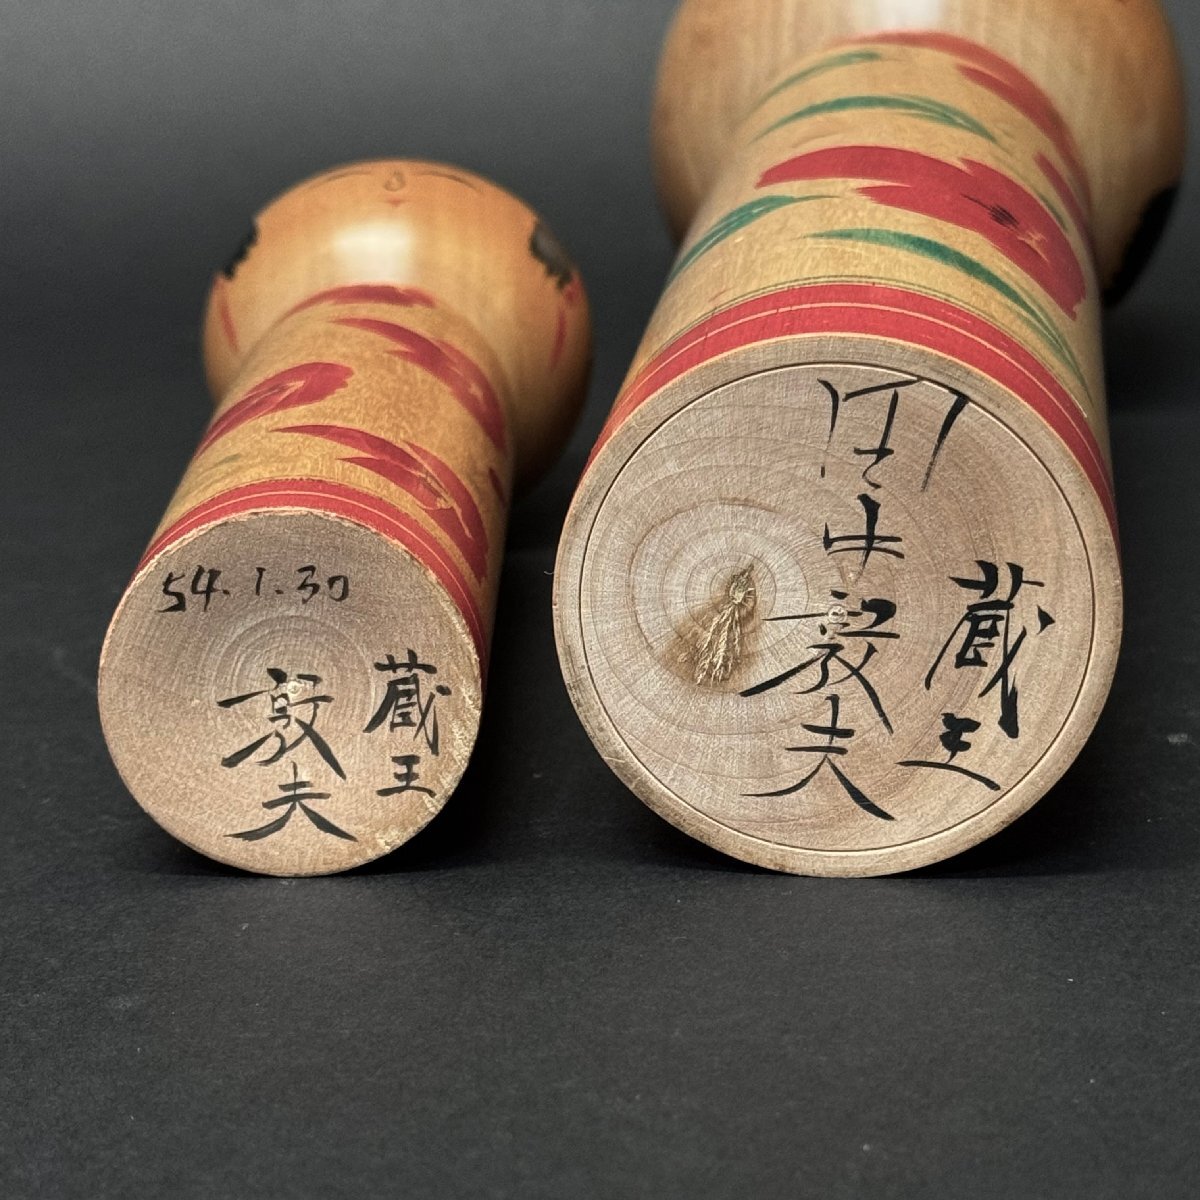 54.1.30
蔵王
敦夫
蔵王
田中敦夫